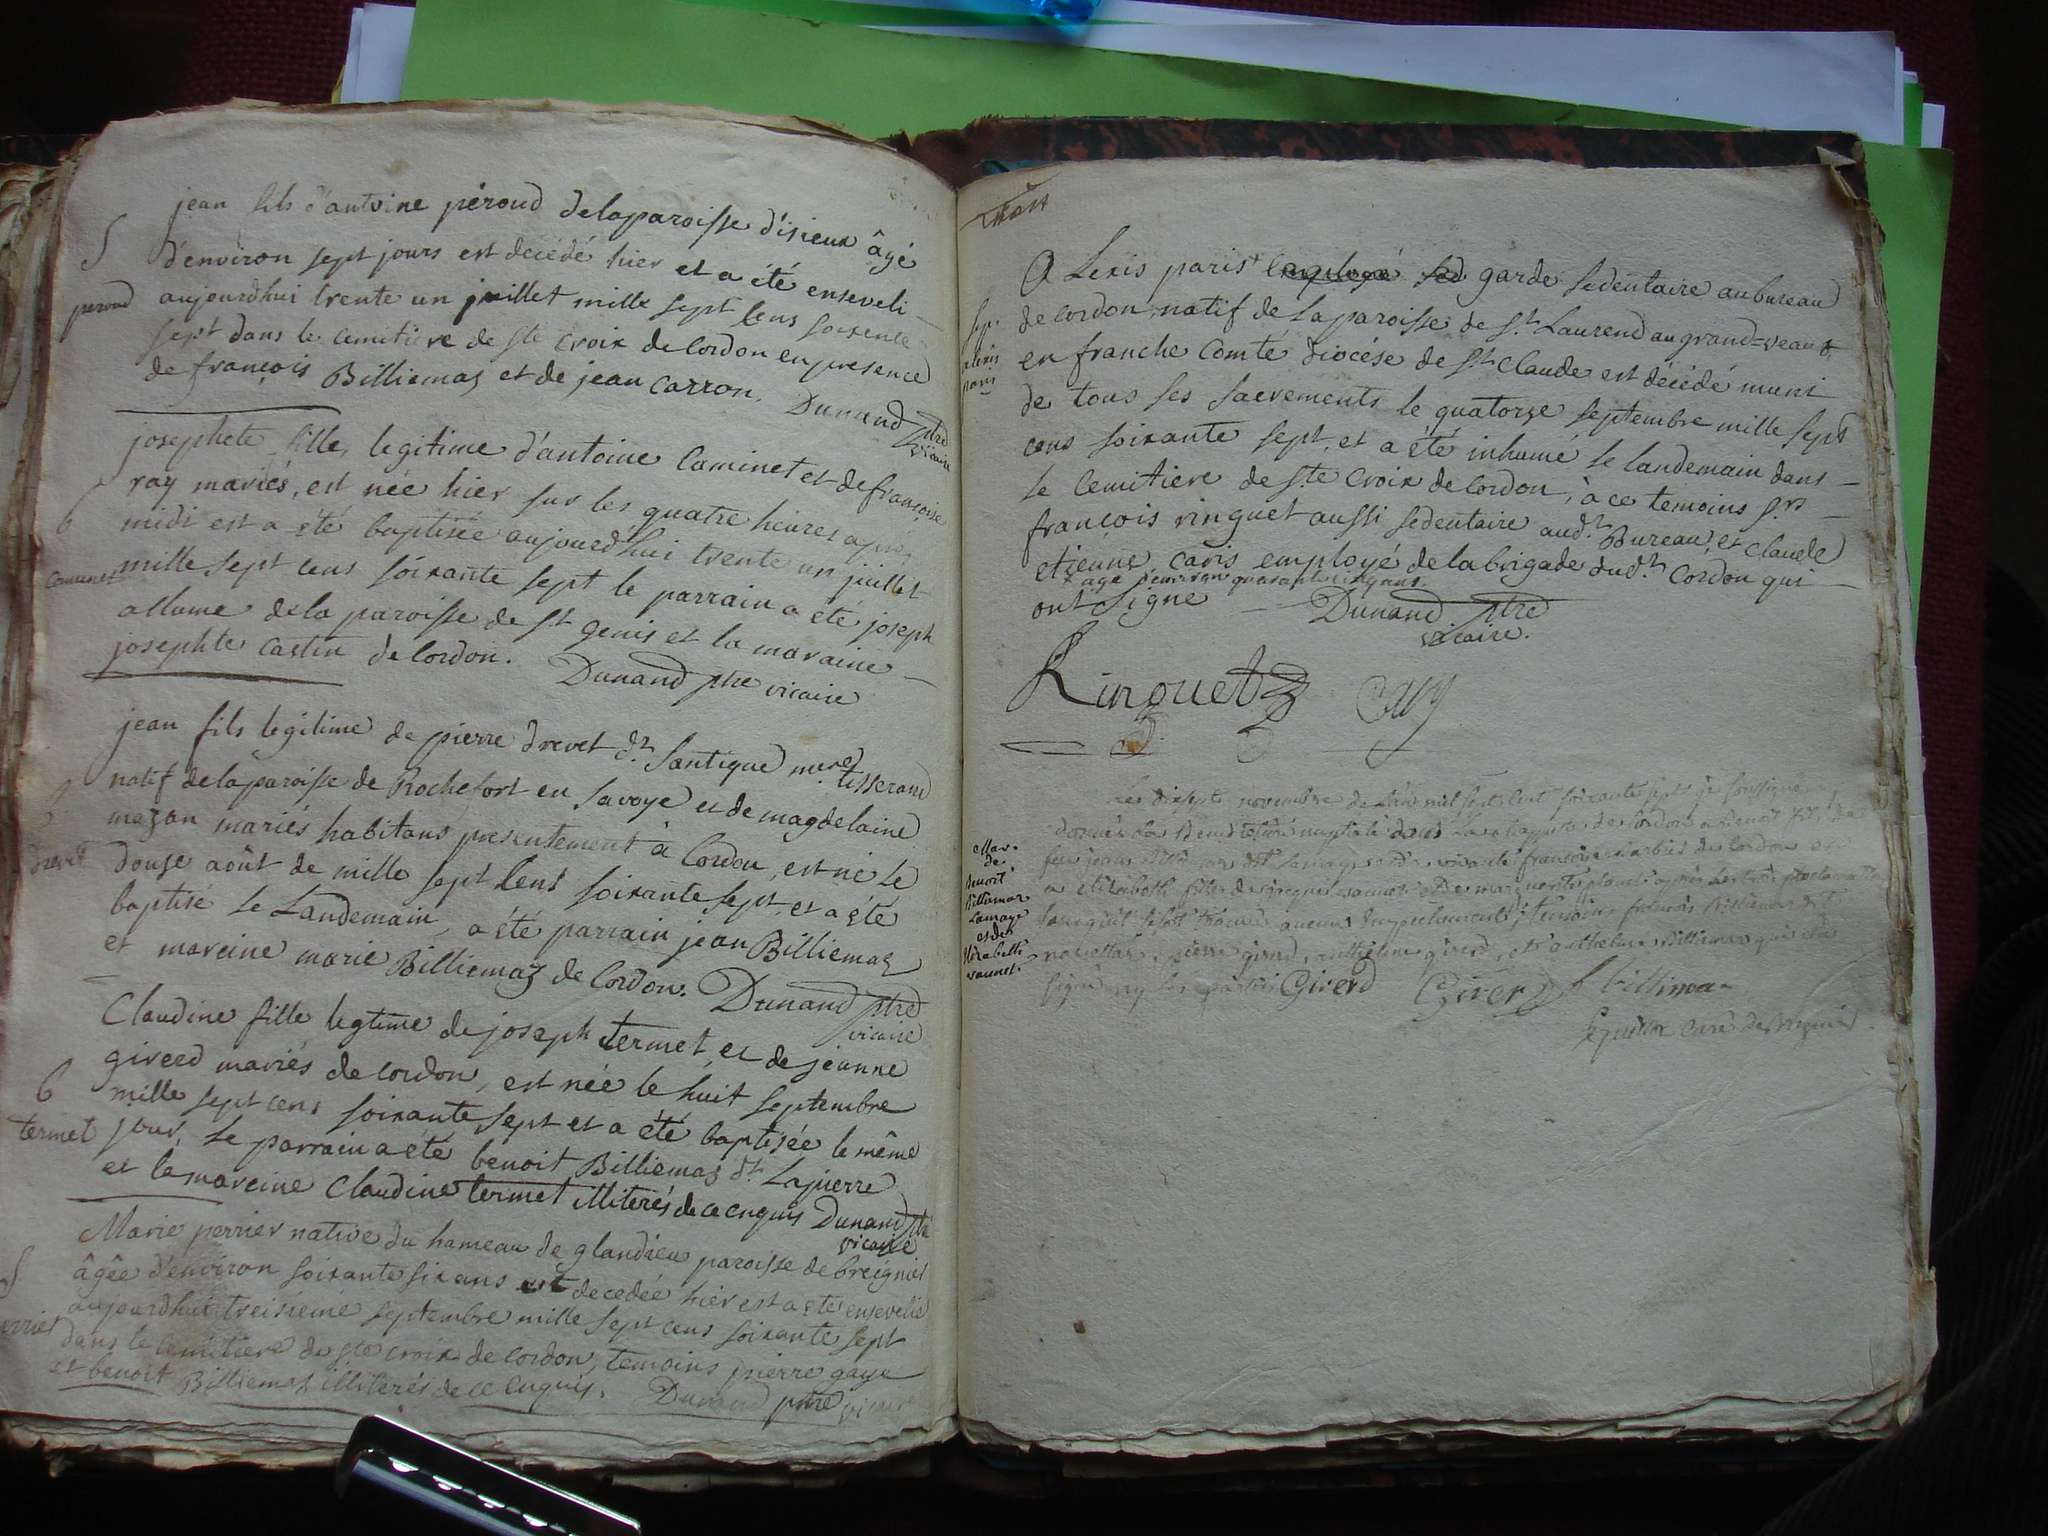 jean fils d'antoine péroud delaparoisse d'isieux âgé
S
d'environ sept jours est decédé hier et a été enseveli
peroud
aujourdhui trente un juillet mille sept cens soixente
sept dans le cemitiere de ste croix de Cordon en presence
de françois Billiemaz et de jean carron. Dunand ptre
vicaire
josephete fille legitime d'antoine Caminet et de françoise
ray mariés, est née hier sur les quatre heures apres
6
midi est a été baptisée aujourdhui trente un juillet
mille sept cens soixante sept le parrain a été joseph
allume de la paroisse de st genis et la maraine
josephte castin de Cordon. Dunand ptre vicaire
jean fils legitime de pierre drevet dt. Santique tisserand
natif de la paroisse de Rochefort en Savoye et de magdelaine
mazan mariés habitans presentement à Cordon, est né le
drevet
douze août de mille sept Cens soixante sept, et a été
baptisé le Landemain, a été parrain jean Billiemaz
et mareine marie Billiemaz de Cordon. Dunand ptre
vicaire
Claudine fille legtime de joseph termet et de jeanne
gireed mariés de cordon, est née le huit septembre
6
mille sept cens soixante sept et a été baptisée le même
termet
jour, le parrain a eté benoit Billiemaz dt. Lapierre
et la mareine Claudine termet illiterés de ce enquis Dunand ptre
vicaire
Marie perrier native du hameau de glandieu paroisse de breignier
S
âgée d'environ soixante six ans est decedée hier est a eté ensevelie
aujourdhui treisieme septembre mille sept cens soixante sept
errier
dans le cemitiere de ste croix de cordon, temoins pierre gaye
et benoit Billiemaz illiterés de ce enquis. Dunand ptre vicaire
Alexis paris + garde sedentaire au bureau
sep.
alexis
paris
de cordon, natif de la paroisse de st. Laurend au grand=veaux,
en franche Comté diocése de st. Claude est décédé muni
de tous ses sacrements le quatorze septembre mille sept
cens soixante sept, et a été inhumé le landemain dans
le cemitiere de ste Croix de Cordon, à ce temoins srs
françois ringuet aussi sedentaire audt. Bureau, et claude
etienne caris employé de la brigade dudt. Cordon qui
+ agé d'environ quarante cinq ans.
ont signé Dunand ptre
vicaire.
Ringuet
novembre de l'an mil sept cent soixante sept je soussigné
Mar.
de
benoit
Billiemaz
Lamage
et de
Elizabeth
vaunet.
donné la Benediction nuptiale de Cordon a Benoit
feu jean françoise de Cordon et
a elizabeth fille de jacques et De marguerite
aucun empechement
pierre girerd, anthelme girerd, et anthelme Billiemaz qui ont
signé ny les parties Girerd Girerd Billiema
curé de Bregnier